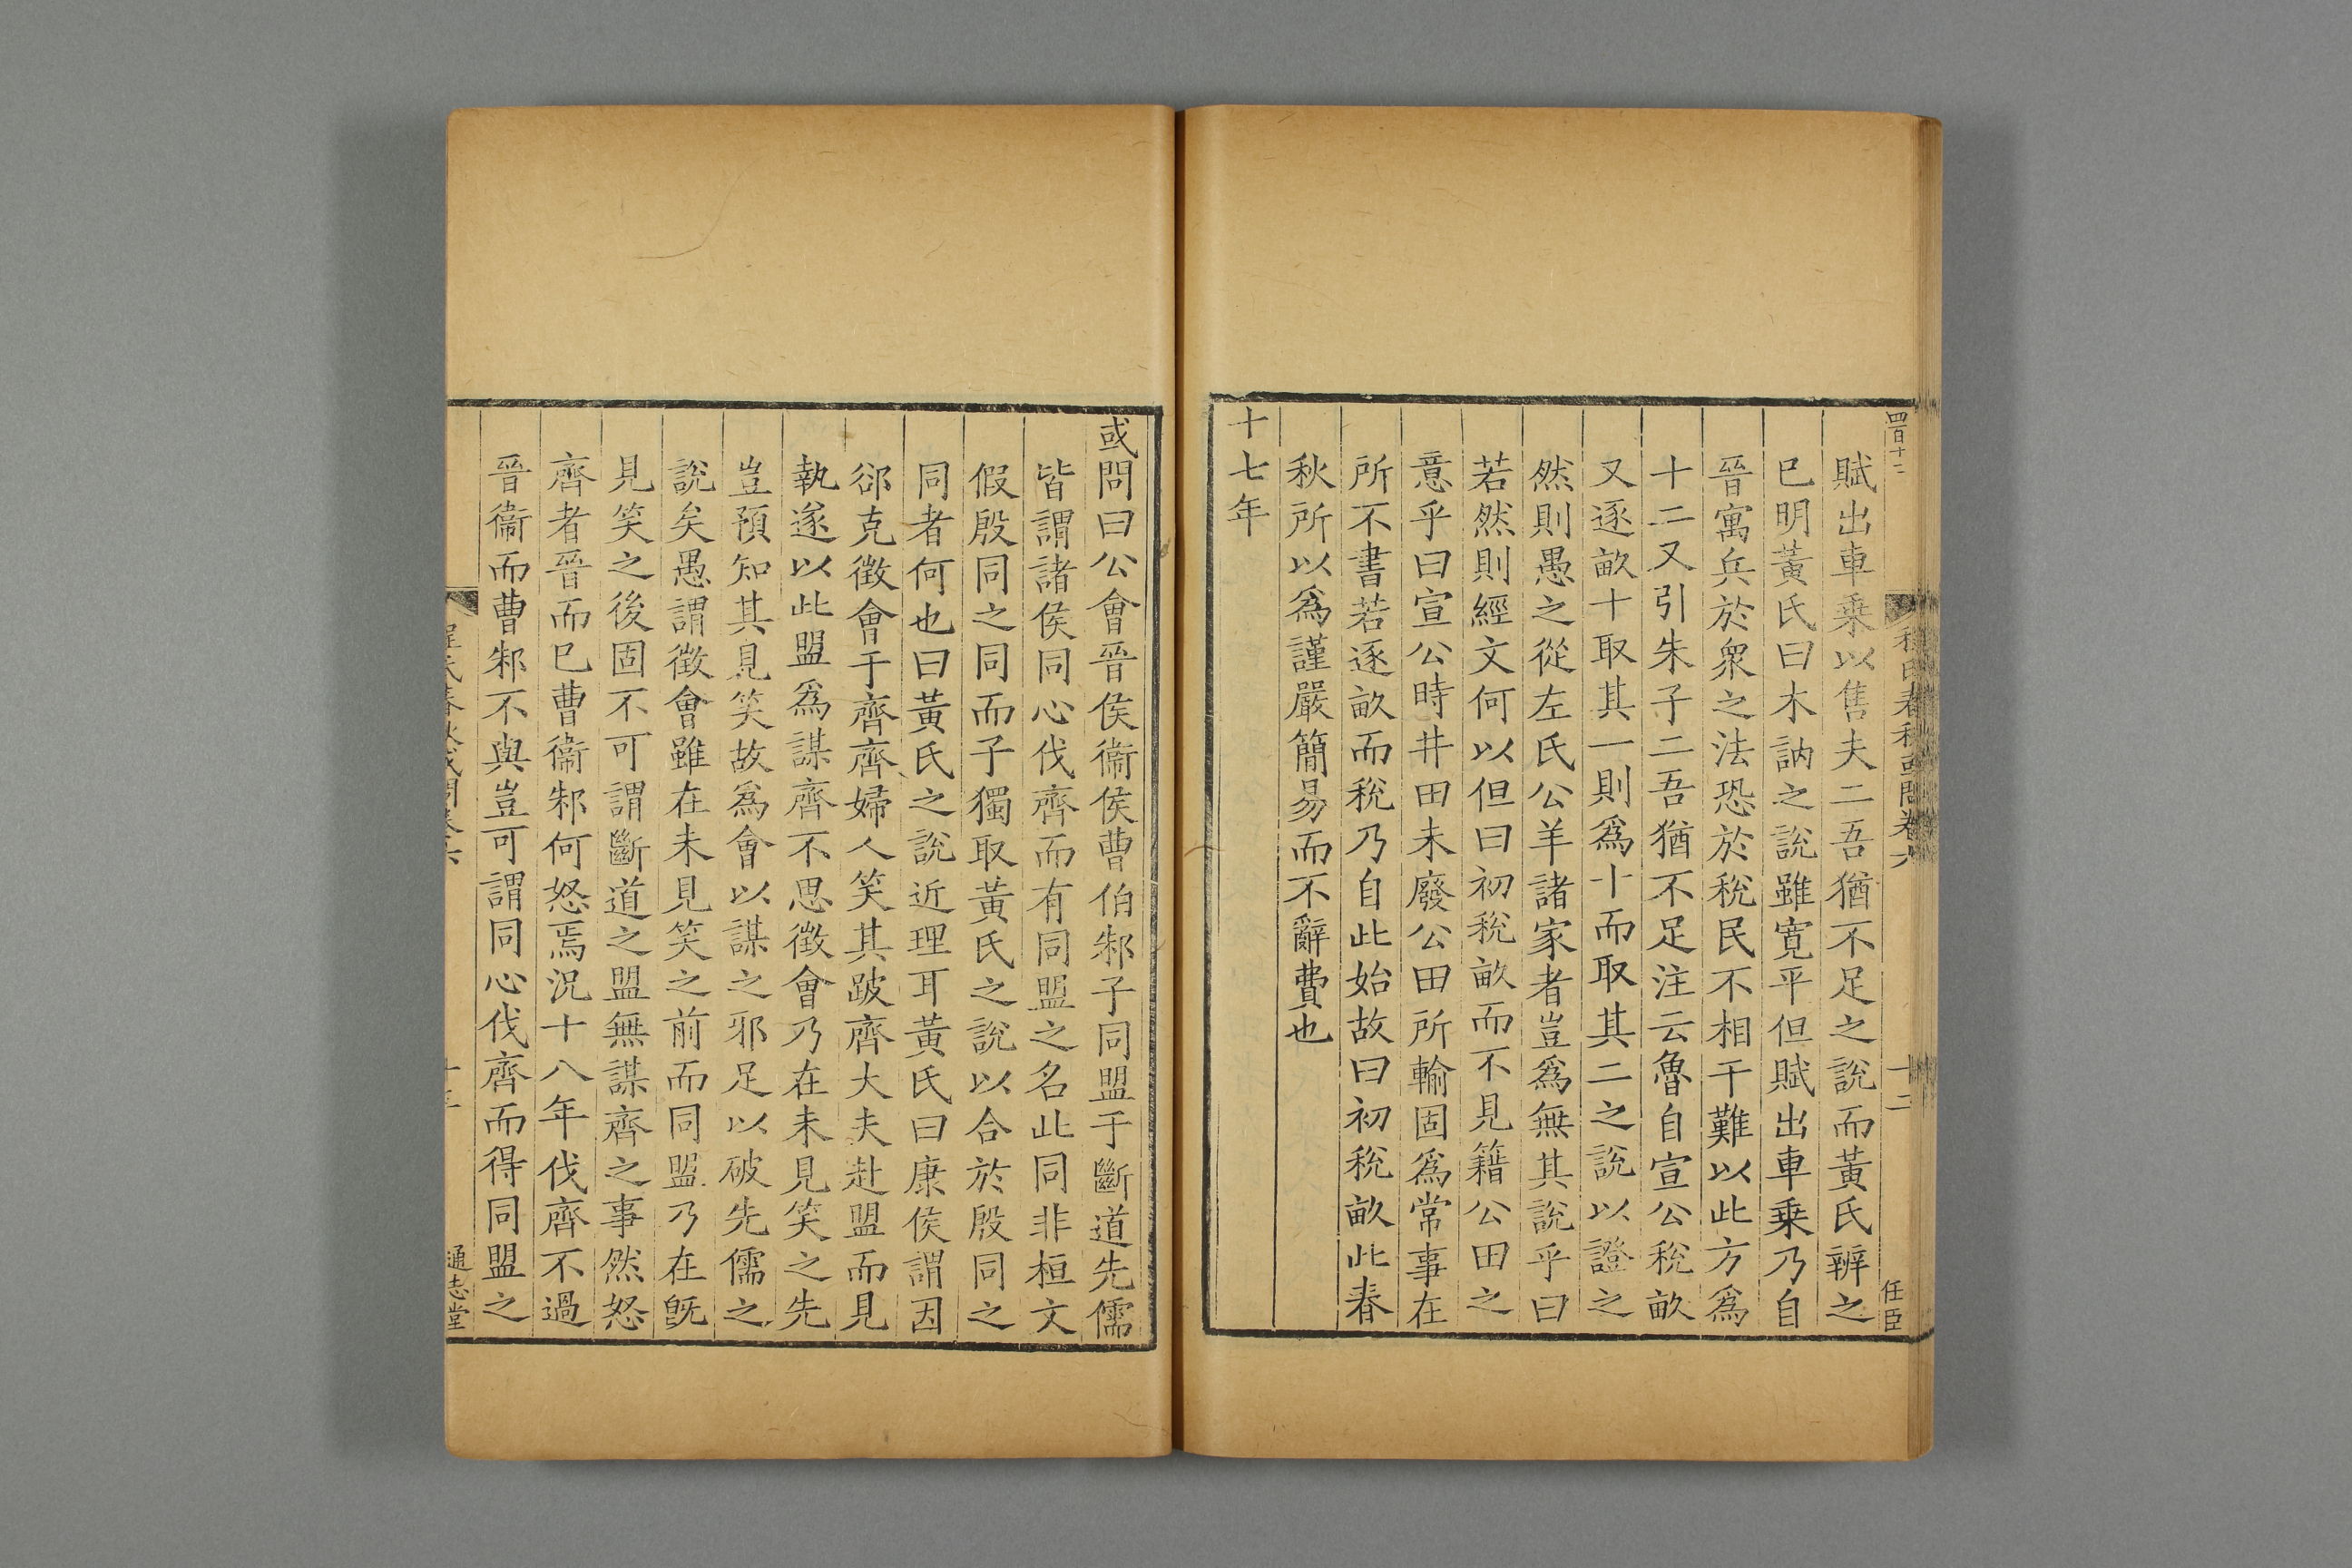 四百十二
程氏春秋或問卷六
十二
任臣
賦出車乗以售夫二吾猶不足之說而黃氏辨之
已明黃氏曰木訥之說雖寛平但賦出車乗乃自
晉寓兵於衆之法恐於稅民不相干難以此方爲
十二又引朱子二吾猶不足注云魯自宣公稅畝
又逐畝十取其一則爲十而取其二之說以證之
然則愚之從左氏公羊諸家者豈爲無其說乎曰
若然則經文何以但曰初稅畝而不見籍公田之
意乎曰宣公時井田未廢公田所輸固爲常事在
所不書若逐畝而稅乃自此始故曰初稅畝此春
秋所以爲謹嚴簡易而不辭費也
十七年
或問曰公會晉侯衞侯曹伯邾子同盟于斷道先儒
皆謂諸侯同心伐齊而有同盟之名此同非桓文
假殷同之同而子獨取黃氏之說以合於殷同之
同者何也曰黃氏之說近理耳黃氏曰康侯謂因
郤克徵會于齊齊婦人笑其跛齊大夫赴盟而見
執遂以此盟爲謀齊不思徵會乃在未見笑之先
豈預知其見笑故爲會以謀之邪足以破先儒之
說矣愚謂徵會雖在未見笑之前而同盟乃在旣
見笑之後固不可謂斷道之盟無謀齊之事然怒
齊者晉而已曹衞邾何怒焉況十八年伐齊不過
晉衞而曹邾不與豈可謂同心伐齊而得同盟之
程氏春秋或問卷六
通志堂